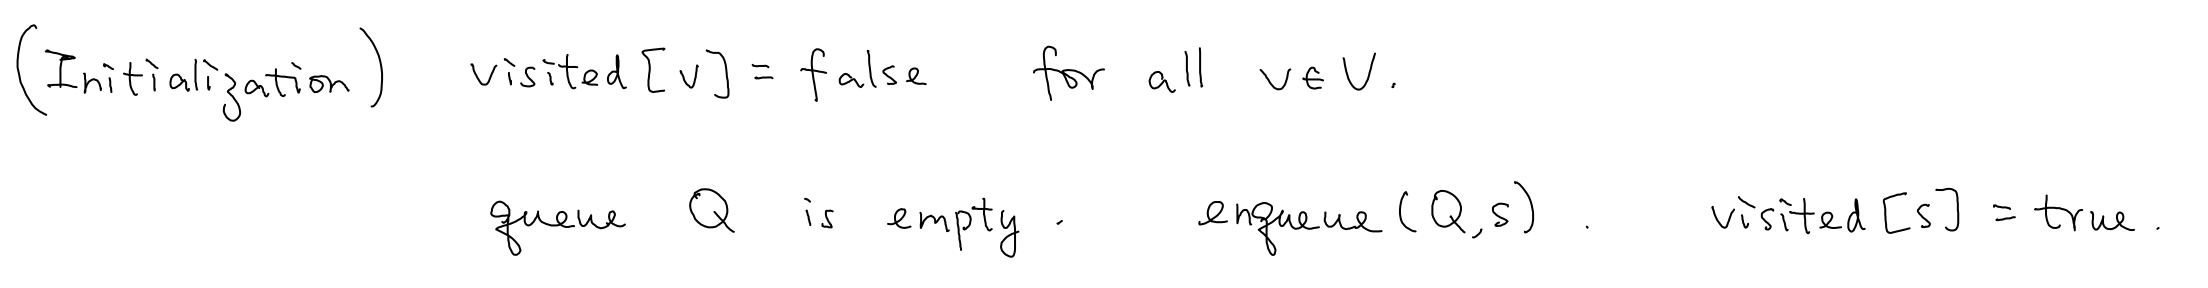 (Initialization) visited[v] = false for all v ∈ V.
queue Q is empty. enqueue(Q,s). visited[s] = true.